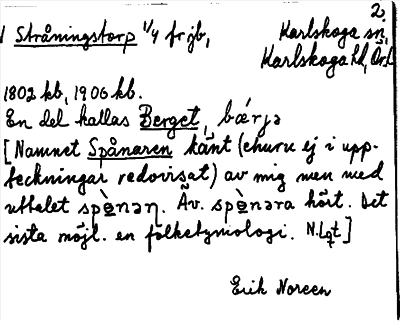 2.
1 Stråningstorp 1/4 frjb,
Karlskoga sn,
Karlskoga hd, Ör.l.
1802 kb, 1906 kb.
En del kallas Berget, bǽrjə
[Namnet Spånaren känt (churu ej i upp-
teckningar redovisat) av mig men med
uttalet spò̱nəɳ. Äv. spò̱nəra hört. Det
sista möjl. en folketymologi. N.Lqt]
Erik Noreen